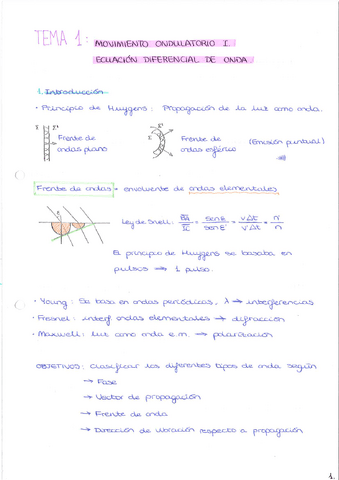 TEMA 1: MOVIMIENTO ONDULATORIO I
ECUACIÓN DIFERENCIAL DE ONDA
1. Introducción
· Principio de Huygens: Propagación de la luz como onda.
Σ Σ' Frente de ondas plano
Σ Frente de ondas esférico (Emisión puntual)
Frente de ondas = envolvente de ondas elementales
Ley de Snell: = sen ε / sen ε' = vΔt / v'Δt = n' / n
El principio de Huygens se basaba en
pulsos → 1 pulso.
· Young: Se basa en ondas periódicas, λ → interferencias
· Fresnel: interf ondas elementales → difracción
· Maxwell: luz como onda e.m. → polarización
OBJETIVOS: Clasificar los diferentes tipos de onda según
→ Fase
→ Vector de propagación
→ Frente de onda
→ Dirección de vibración respecto a propagación
1.